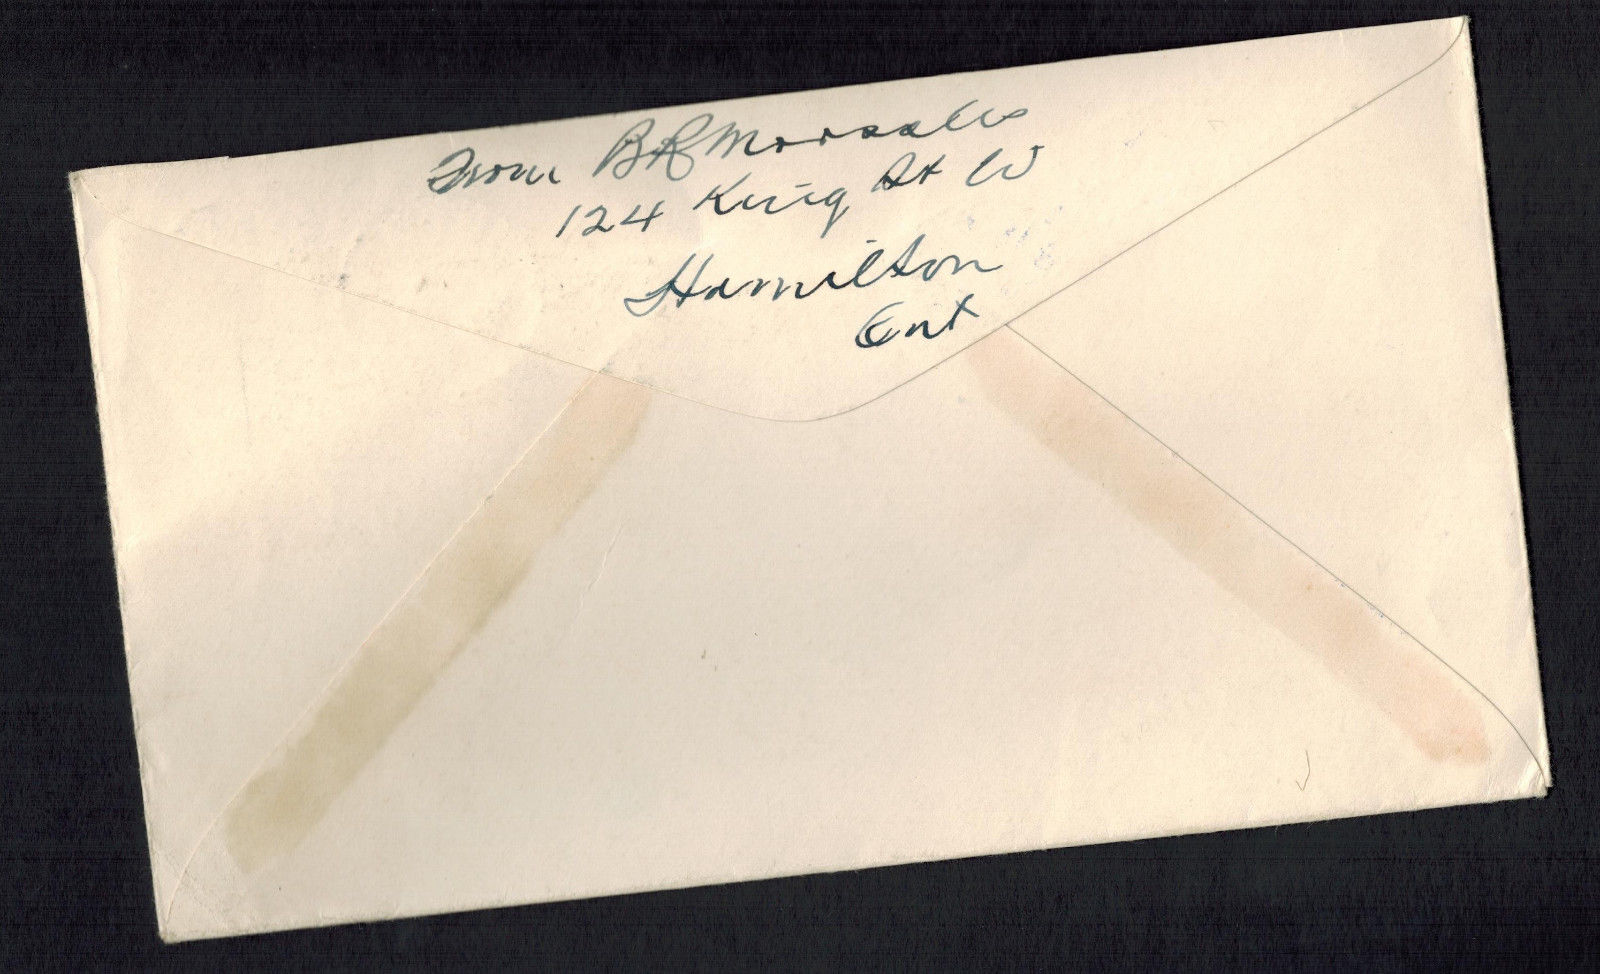 From B R
124 King St W
Hamilton
Ont